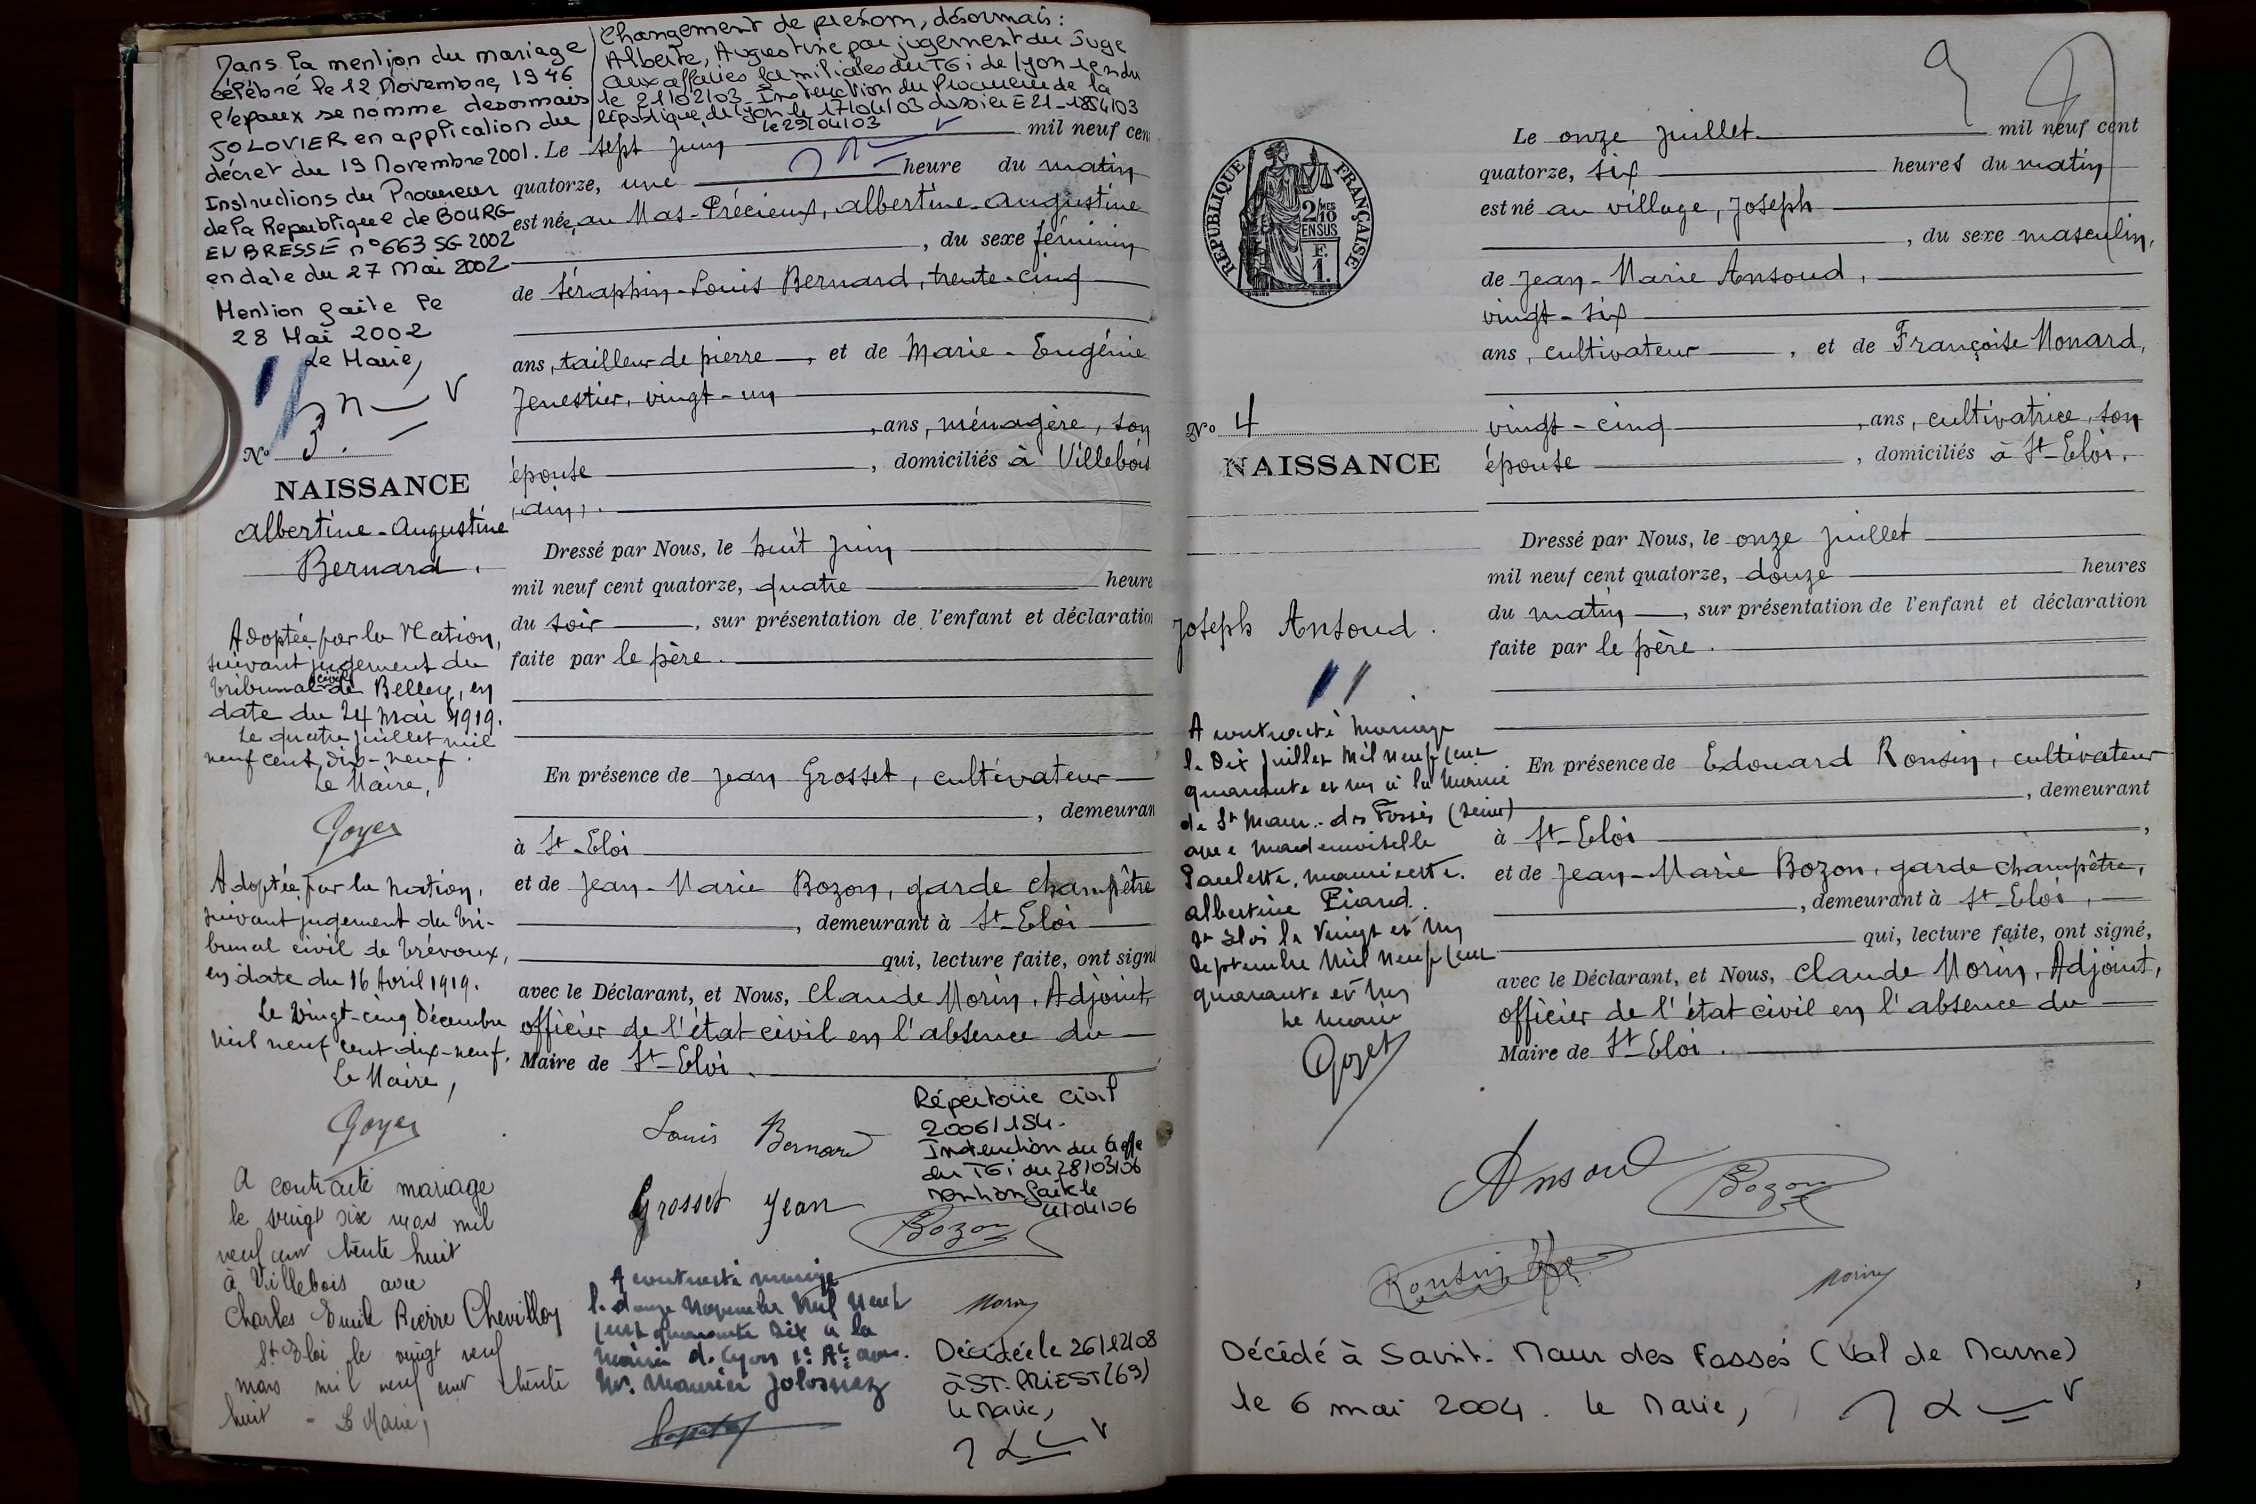 Dans la mention du mariage
célébré le 12 Novembre 1946
l'epoux se nomme desormais
JOLOVIER en application du
décret du 19 Novembre 2001.
Instructions du Procureur
de la Republique de BOURG
EN BRESSE n° 663 SG 2002
en date du 27 Mai 2002
Mention faite le
28 Mai 2002
Le Maire,
Changement de prénom, désormais :
Alberte, Augustine par jugement du Juge
aux affaires familiales du TGi de Lyon rendu
le 21/02/03 - Instruction du Procureur de la
République de Lyon le 17/04/03 dossier E 21-1854/03
le 29/04/03
N° 3.
NAISSANCE
Albertine-Augustine
Bernard.
Adoptée par la Nation,
suivant jugement du
tribunal civil de Belley, en
date du 24 mai 1919.
Le quatre juillet mil
neuf cent dix-neuf.
Le Maire,
Goyet
Adoptée par la nation,
suivant jugement du tri-
bunal civil de Trévoux,
en date du 16 Avril 1919.
Le Vingt-cinq Décembre
mil neuf cent dix-neuf.
Le Maire,
Goyet
A contracté mariage
le vingt six mars mil
neuf cent trente huit
à Villebois avec
Charles Emile Pierre Chevillon
St Eloi le vingt neuf
mars mil neuf cent trente
huit - Le Maire,
Le sept juin mil neuf cent
quatorze, une heure du matin
est née, au Mas-Précieux, Albertine-Augustine
, du sexe féminin
de Séraphin-Louis Bernard, trente-cinq
ans, tailleur de pierre , et de Marie-Eugénie
Jenestier, vingt-un
, ans, ménagère, son
épouse , domiciliés à Villebois
(Ain).
Dressé par Nous, le huit juin
mil neuf cent quatorze, quatre heure
du soir , sur présentation de l'enfant et déclaration
faite par le père.
En présence de Jean Grosset, cultivateur
, demeurant
à St-Eloi
et de Jean-Marie Bozon, garde champêtre
, demeurant à St-Eloi
qui, lecture faite, ont signé
avec le Déclarant, et Nous, Claude Morin, Adjoint,
officier de l'état civil en l'absence du
Maire de St-Eloi.
Louis Bernard
Grosset Jean
Bozon
Morin
Répertoire civil
2006/154.
Instruction du Greffe
du TGi du 28/03/06
mention faite le
4/04/06
A contracté mariage
le douze Novembre Mil Neuf
Cent quarante six à la
Mairie de Lyon 1er Art avec
Mr. Maurice
Décédée le 26/12/08
à ST. PRIEST (69)
Le Maire,
REPUBLIQUE FRANÇAISE
2/10MES
EN SUS
F.
1.
N° 4
NAISSANCE
Joseph Ansoud.
A contracté mariage
le Dix juillet Mil neuf cent
quarante et un à la Mairie
de St Maur-des Fossés (Seine)
avec Mademoiselle
Paulette, Mauricette.
Albertine Picard.
St Eloi le Vingt et Un
Septembre Mil Neuf Cent
quarante et Un
Le Maire
Goyet
Le onze juillet mil neuf cent
quatorze, six heures du matin
est né au village, Joseph
, du sexe masculin,
de Jean-Marie Ansoud,
vingt-six
ans, cultivateur , et de Françoise Monard,
vingt-cinq , ans, cultivatrice, son
épouse , domiciliés à St-Eloi.
Dressé par Nous, le onze juillet
mil neuf cent quatorze, douze heures
du matin , sur présentation de l'enfant et déclaration
faite par le père.
En présence de Edouard Ronsin, cultivateur
, demeurant
à St-Eloi ,
et de Jean-Marie Bozon, garde champêtre,
, demeurant à St-Eloi,
qui, lecture faite, ont signé,
avec le Déclarant, et Nous, Claude Morin, Adjoint,
officier de l'état civil en l'absence du
Maire de St-Eloi.
Ansoud
Bozon
Ronsin
Morin
Décédé à Saint-Maur des Fossés (Val de Marne)
le 6 mai 2004. Le Maire,